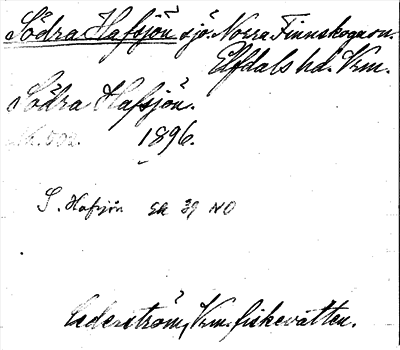 Södra Hafsjön sjö. Norra Finnskogen sn.
Elfdals hd. Vrm.
Södra Hafsjön.
1896.
S. Hafsjön GK 39 NO
Cederström, Vrm. fiskevatten.